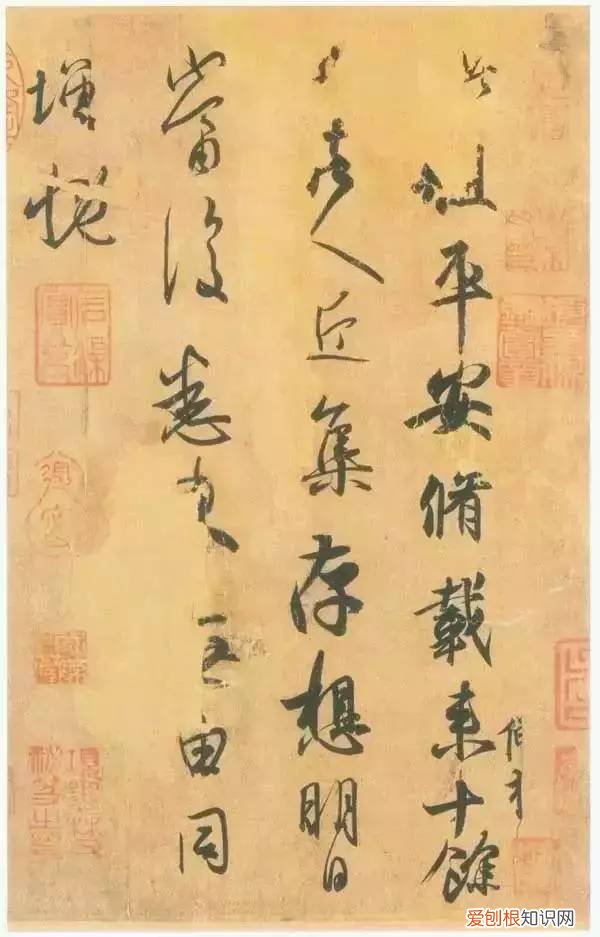 此粗平安脩載来十餘
日諸人近集存想明日
當復悉来无由同
增慨
爱刨根知识网